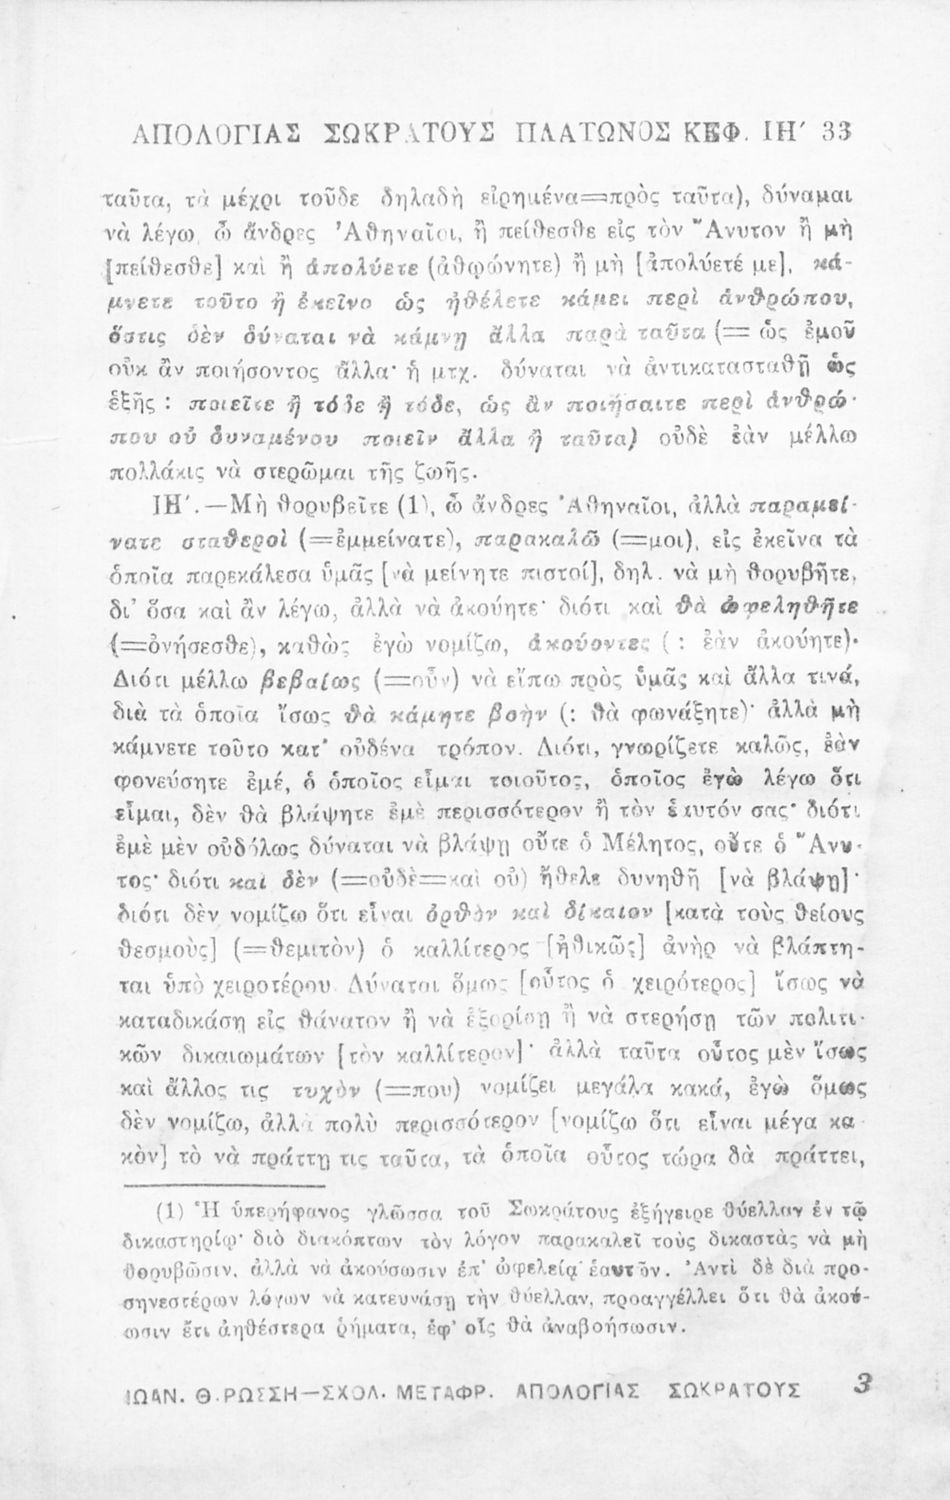 ΑΠΟΛΟΓΙΑΣ ΣΩΚΡΑΤΟΥΣ ΠΛΑΤΩΝΟΣ ΚΕΦ. ΙΗ′ 33
ταῦτα, τὰ μέχρι τοῦδε δηλαδὴ εἰρημένα=πρὸς ταῦτα), δύναμαι
νὰ λέγω, ὦ ἄνδρες Ἀθηναῖοι, ἢ πείθεσθε εἰς τὸν Ἄνυτον ἢ μὴ
[πείθεσθε] καὶ ἢ ἀπολύετε (ἀθῳώνητε) ἢ μὴ [ἀπολύετέ με], κά-
μνετε τοῦτο ἢ ἐκεῖνο ὡς ἠθέλετε κάμει περὶ ἀνθρώπου,
ὅστις δὲν δύναται νὰ κάμνῃ ἄλλα παρὰ ταῦτα (= ὡς ἐμοῦ
οὐκ ἂν ποιήσοντος ἄλλα· ἡ μτχ. δύναται νὰ ἀντικατασταθῇ ὡς
ἑξῆς : ποιεῖτε ἢ τόδε ἢ τόδε, ὡς ἂν ποιήσαιτε περὶ ἀνθρώ-
που οὐ δυναμένου ποιεῖν ἄλλα ἢ ταῦτα) οὐδὲ ἐὰν μέλλω
πολλάκις νὰ στερῶμαι τῆς ζωῆς.
ΙΗ′.—Μὴ θορυβεῖτε (1), ὦ ἄνδρες Ἀθηναῖοι, ἀλλὰ παραμεί-
νατε σταθεροὶ (=ἐμμείνατε), παρακαλῶ (=μοι), εἰς ἐκεῖνα τὰ
ὁποῖα παρεκάλεσα ὑμᾶς [νὰ μείνητε πιστοί], δηλ. νὰ μὴ θορυβῆτε,
δι' ὅσα καὶ ἂν λέγω, ἀλλὰ νὰ ἀκούητε· διότι καὶ θὰ ὠφεληθῆτε
(=ὀνήσεσθε), καθὼς ἐγὼ νομίζω, ἀκούοντες ( : ἐὰν ἀκούητε)·
Διότι μέλλω βεβαίως (=οὖν) νὰ εἴπω πρὸς ὑμᾶς καὶ ἄλλα τινά,
διὰ τὰ ὁποῖα ἴσως θὰ κάμητε βοὴν (: θὰ φωνάξητε)· ἀλλὰ μὴ
κάμνετε τοῦτο κατ' οὐδένα τρόπον. Διότι, γνωρίζετε καλῶς, ἐὰν
φονεύσητε ἐμέ, ὁ ὁποῖος εἶμαι τοιοῦτος, ὁποῖος ἐγὼ λέγω ὅτι
εἶμαι, δὲν θὰ βλάψητε ἐμὲ περισσότερον ἢ τὸν ἑαυτόν σας· διότι
ἐμὲ μὲν οὐδόλως δύναται νὰ βλάψῃ οὔτε ὁ Μέλητος, οὔτε ὁ Ἄνυ-
τος· διότι καὶ δὲν (=οὐδὲ=καὶ οὐ) ἤθελε δυνηθῆ [νὰ βλάψῃ]·
διότι δὲν νομίζω ὅτι εἶναι ὀρθὸν καὶ δίκαιον [κατὰ τοὺς θείους
θεσμοὺς] (=θεμιτὸν) ὁ καλλίτερος [ἠθικῶς] ἀνὴρ νὰ βλάπτη-
ται ὑπὸ χειροτέρου. Δύναται ὅμως [οὗτος ὁ χειρότερος] ἴσως νὰ
καταδικάσῃ εἰς θάνατον ἢ νὰ ἐξορίσῃ ἢ νὰ στερήσῃ τῶν πολιτι-
κῶν δικαιωμάτων [τὸν καλλίτερον]· ἀλλὰ ταῦτα οὗτος μὲν ἴσως
καὶ ἄλλος τις τυχὸν (=που) νομίζει μεγάλα κακά, ἐγὼ ὅμως
δὲν νομίζω, ἀλλὰ πολὺ περισσότερον [νομίζω ὅτι εἶναι μέγα κα-
κὸν] τὸ νὰ πράττῃ τις ταῦτα, τὰ ὁποῖα οὗτος τώρα δὰ πράττει,
(1) Ἡ ὑπερήφανος γλῶσσα τοῦ Σωκράτους ἐξήγειρε θύελλαν ἐν τῷ
δικαστηρίῳ· διὸ διακόπτων τὸν λόγον παρακαλεῖ τοὺς δικαστὰς νὰ μὴ
θορυβῶσιν, ἀλλὰ νὰ ἀκούσωσιν ἐπ' ὠφελείᾳ ἑαυτῶν. Ἀντὶ δὲ διὰ προ-
σηνεστέρων λόγων νὰ κατευνάσῃ τὴν θύελλαν, προαγγέλλει ὅτι θὰ ἀκού-
σωσιν ἔτι ἀηθέστερα ῥήματα, ἐφ' οἷς θὰ ἀναβοήσωσιν.
ΙΩΑΝ. Θ. ΡΩΣΣΗ—ΣΧΟΛ. ΜΕΤΑΦΡ. ΑΠΟΛΟΓΙΑΣ ΣΩΚΡΑΤΟΥΣ 3